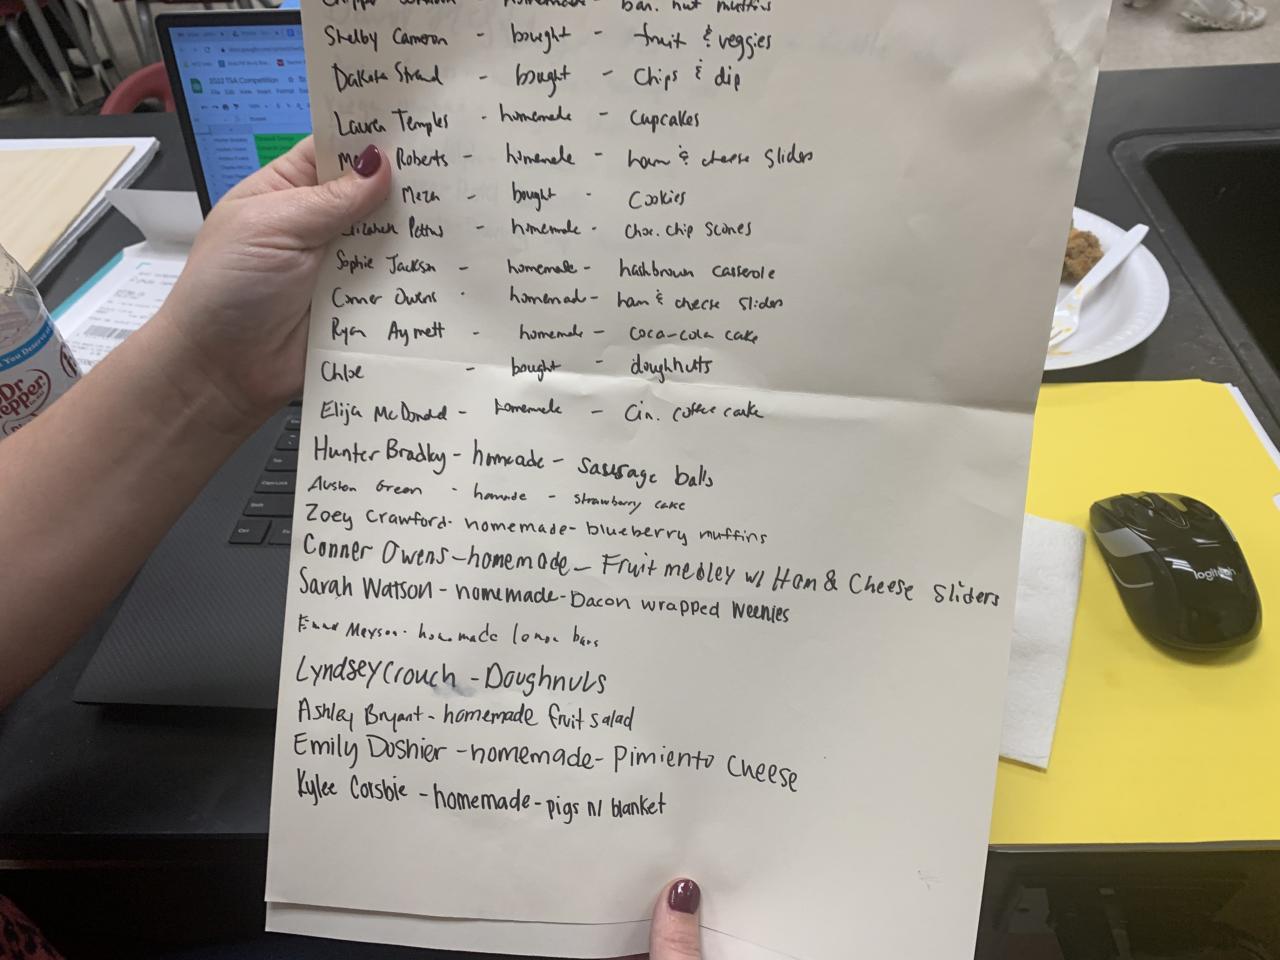 homemade - ban. nut muffins
Shelby Cameron - bought - fruit & veggies
Dakota Strand - bought - Chips & dip
Lauren Temples - homemade - cupcakes
Roberts - homemade - ham & cheese Sliders
Meza - bought - Cookies
Elizabeth Pettus - homemade - choc. chip scones
Sophie Jackson - homemade - hashbrown casserole
Conner Owens - homemad - ham & cheese sliders
Ryan Aymett - homemade - coca-cola cake
Chloe - bought - doughnuts
Elija McDonald - homemade - Cin. coffee cake
Hunter Bradley - homeade - sausage balls
Auston Green - homade - strawberry cake
Zoey Crawford - homemade - blueberry muffins
Conner Owens - homemade - Fruit medley w/ Ham & Cheese Sliders
Sarah Watson - homemade - Bacon wrapped Weenies
homemade lemon bars
Lyndsey Crouch - Doughnuts
Ashley Bryant - homemade fruit salad
Emily Doshier - homemade - Pimiento Cheese
Kylee Corsbie - homemade - pigs n/ blanket
2022 TSA Competition
File Edit View Insert
Dr Pepper
logitech